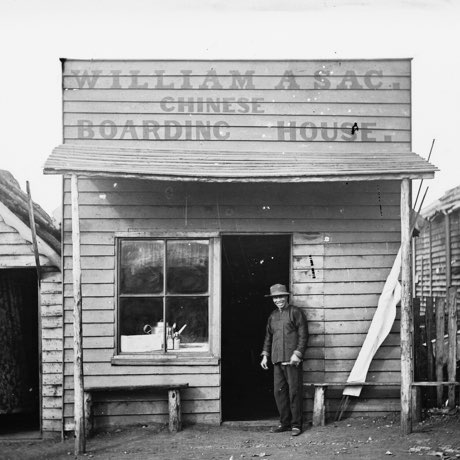 WILLIAM ASAC.
CHINESE
BOARDING HOUSE.